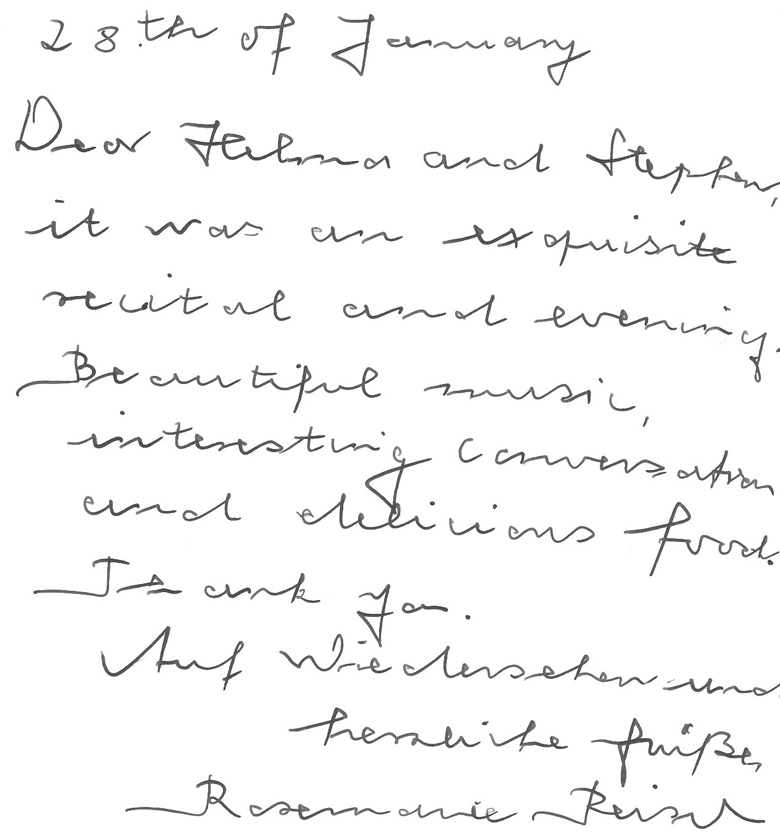 28.th of January
Dear Thelma and Stephen,
it was an exquisite
recital and evening.
Beautiful music,
interesting conversation
and delicious food.
Thank you.
Auf Wiedersehen und
herzliche Grüße,
Rosemarie